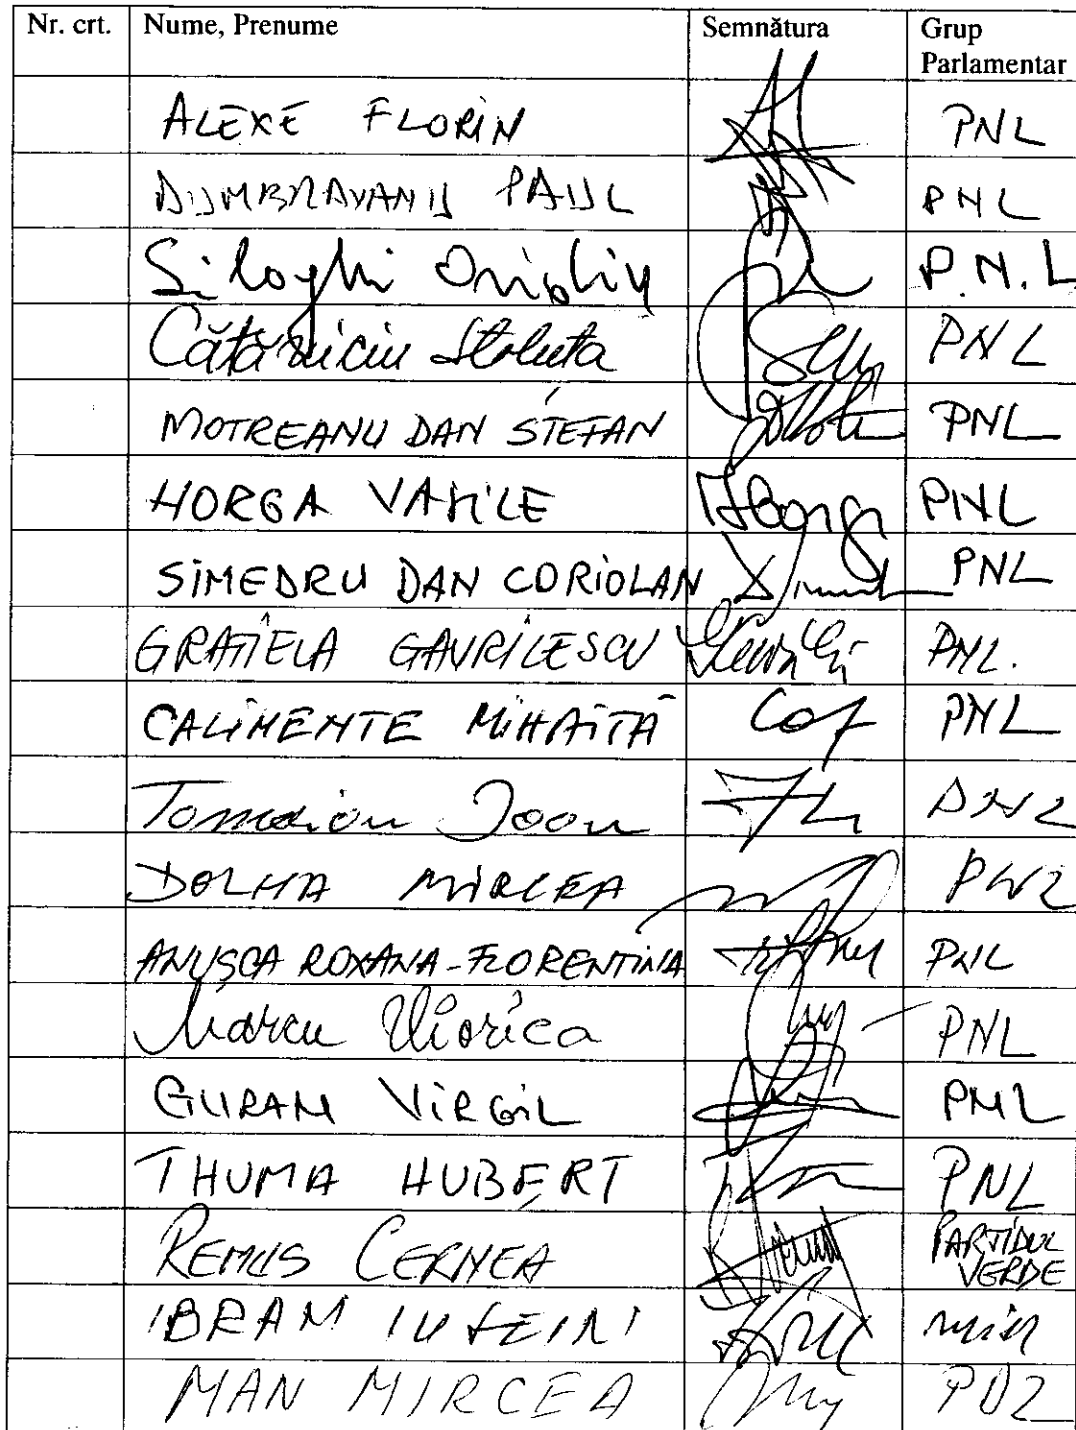 Nr. crt. Nume, Prenume Semnătura Grup Parlamentar
ALEXE FLORIN PNL
DUMBRAVANU PAUL PNL
Siloghi Ovidiu P.N.L
Cătăniciu Steluta PNL
MOTREANU DAN STEFAN PNL
HORGA VASILE PNL
SIMEDRU DAN CORIOLAN PNL
GRATIELA GAVRILESCU PNL.
CALIMENTE MIHĂIȚĂ PNL
Tomoioiu Ioan PNL
DOLHA MIRCEA PNL
ANUȘCA ROXANA-FLORENTINA PNL
Marcu Viorica PNL
GURAN VIRGIL PNL
THUMA HUBERT PNL
REMUS CERNEA PARTIDUL VERDE
IBRAM IUSEIN min
MAN MIRCEA PDL